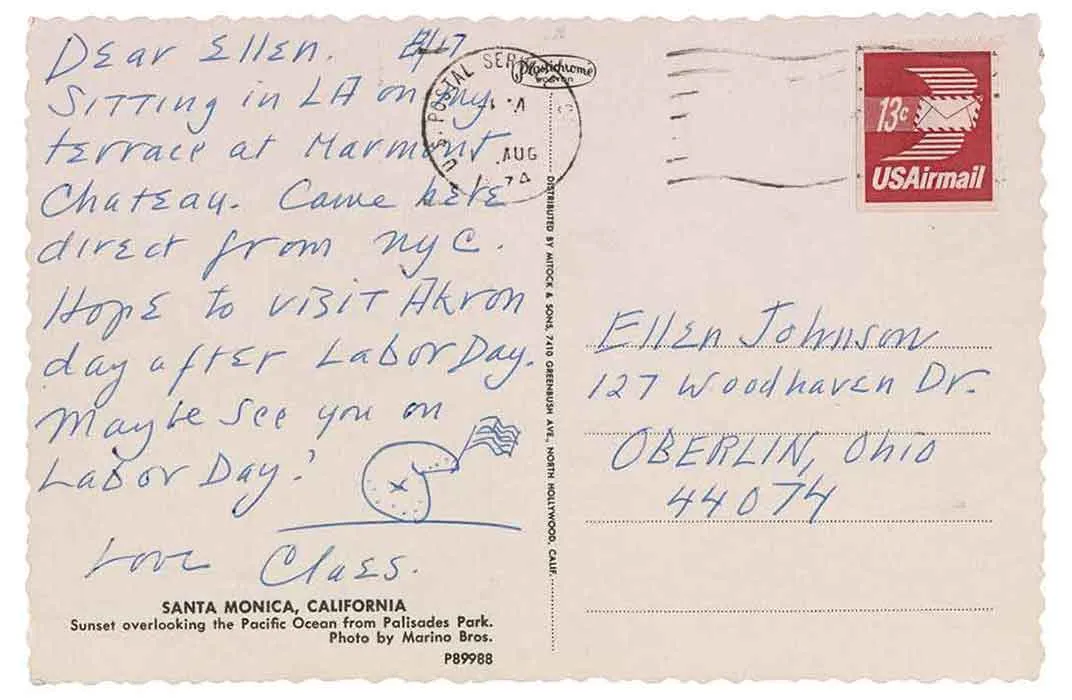 Dear Ellen. 8/17
Sitting in LA on my
terrace at Marmont
Chateau. Came here
direct from NYC.
Hope to visit Akron
day after Labor Day.
Maybe see you on
Labor Day!
Love Claes.
SANTA MONICA, CALIFORNIA
Sunset overlooking the Pacific Ocean from Palisades Park.
Photo by Marino Bros.
P89988
U.S. POSTAL SERVICE
AUG
Plastichrome
BOSTON
DISTRIBUTED BY MITOCK & SONS, 7410 GREENBUSH AVE., NORTH HOLLYWOOD, CALIF.
13c
USAirmail
Ellen Johnson
127 Woodhaven Dr.
OBERLIN, Ohio
44074